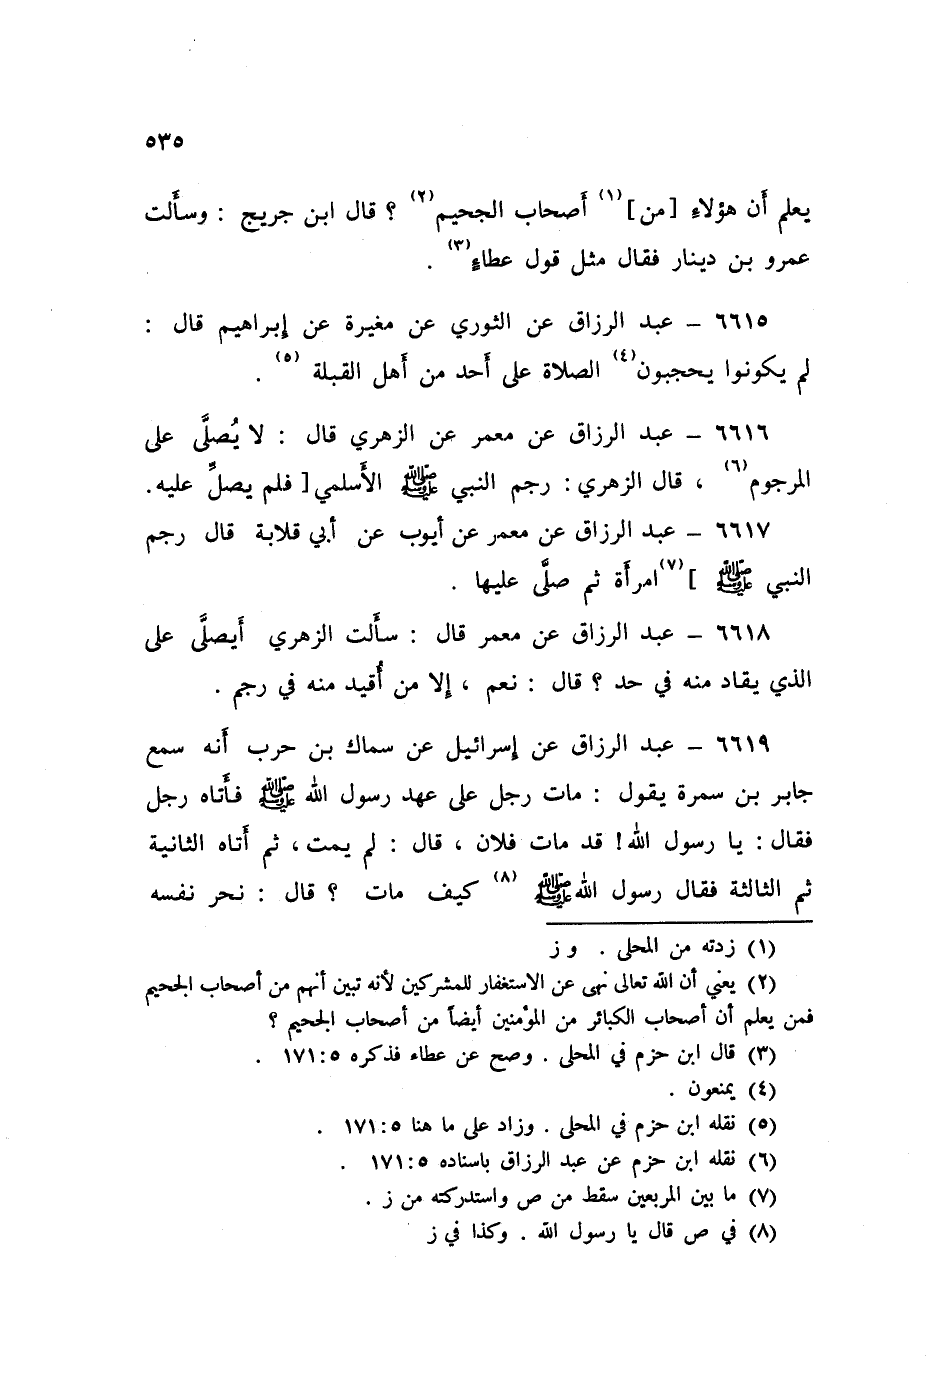 ٥٣٥
يعلم أن هؤلاء [من](١) أصحاب الجحيم(٢) ؟ قال ابن جريج : وسألت
عمرو بن دينار فقال مثل قول عطاءٍ(٣) .
٦٦١٥ – عبد الرزاق عن الثوري عن مغيرة عن إبراهيم قال :
لم يكونوا يحجبون(٤) الصلاة على أحد من أهل القبلة(٥) .
٦٦١٦ – عبد الرزاق عن معمر عن الزهري قال : لا يُصلَّى على
المرجوم(٦) ، قال الزهري : رجم النبي ﷺ الأسلمي [ فلم يصلِّ عليه.
٦٦١٧ – عبد الرزاق عن معمر عن أيوب عن أبي قلابة قال رجم
النبي ﷺ ](٧) امرأة ثم صلَّى عليها .
٦٦١٨ – عبد الرزاق عن معمر قال : سألت الزهري أيصلَّى على
الذي يقاد منه في حد ؟ قال : نعم ، إلا من أُقيد منه في رجم .
٦٦١٩ – عبد الرزاق عن إسرائيل عن سماك بن حرب أنه سمع
جابر بن سمرة يقول : مات رجل على عهد رسول الله ﷺ فأتاه رجل
فقال : يا رسول الله! قد مات فلان ، قال : لم يمت ، ثم أتاه الثانية
ثم الثالثة فقال رسول الله ﷺ (٨) كيف مات ؟ قال : نحر نفسه
(١) زدته من المحلى . و ز
(٢) يعني أن الله تعالى نهى عن الاستغفار للمشركين لأنه تبين أنهم من أصحاب الجحيم
فمن يعلم أن أصحاب الكبائر من المؤمنين أيضاً من أصحاب الجحيم ؟
(٣) قال ابن حزم في المحلى . وصح عن عطاء فذكره ٥ : ١٧١ .
(٤) يمنعون .
(٥) نقله ابن حزم في المحلى . وزاد على ما هنا ٥ : ١٧١ .
(٦) نقله ابن حزم عن عبد الرزاق باسناده ٥ : ١٧١ .
(٧) ما بين المربعين سقط من ص واستدركته من ز .
(٨) في ص قال يا رسول الله . وكذا في ز